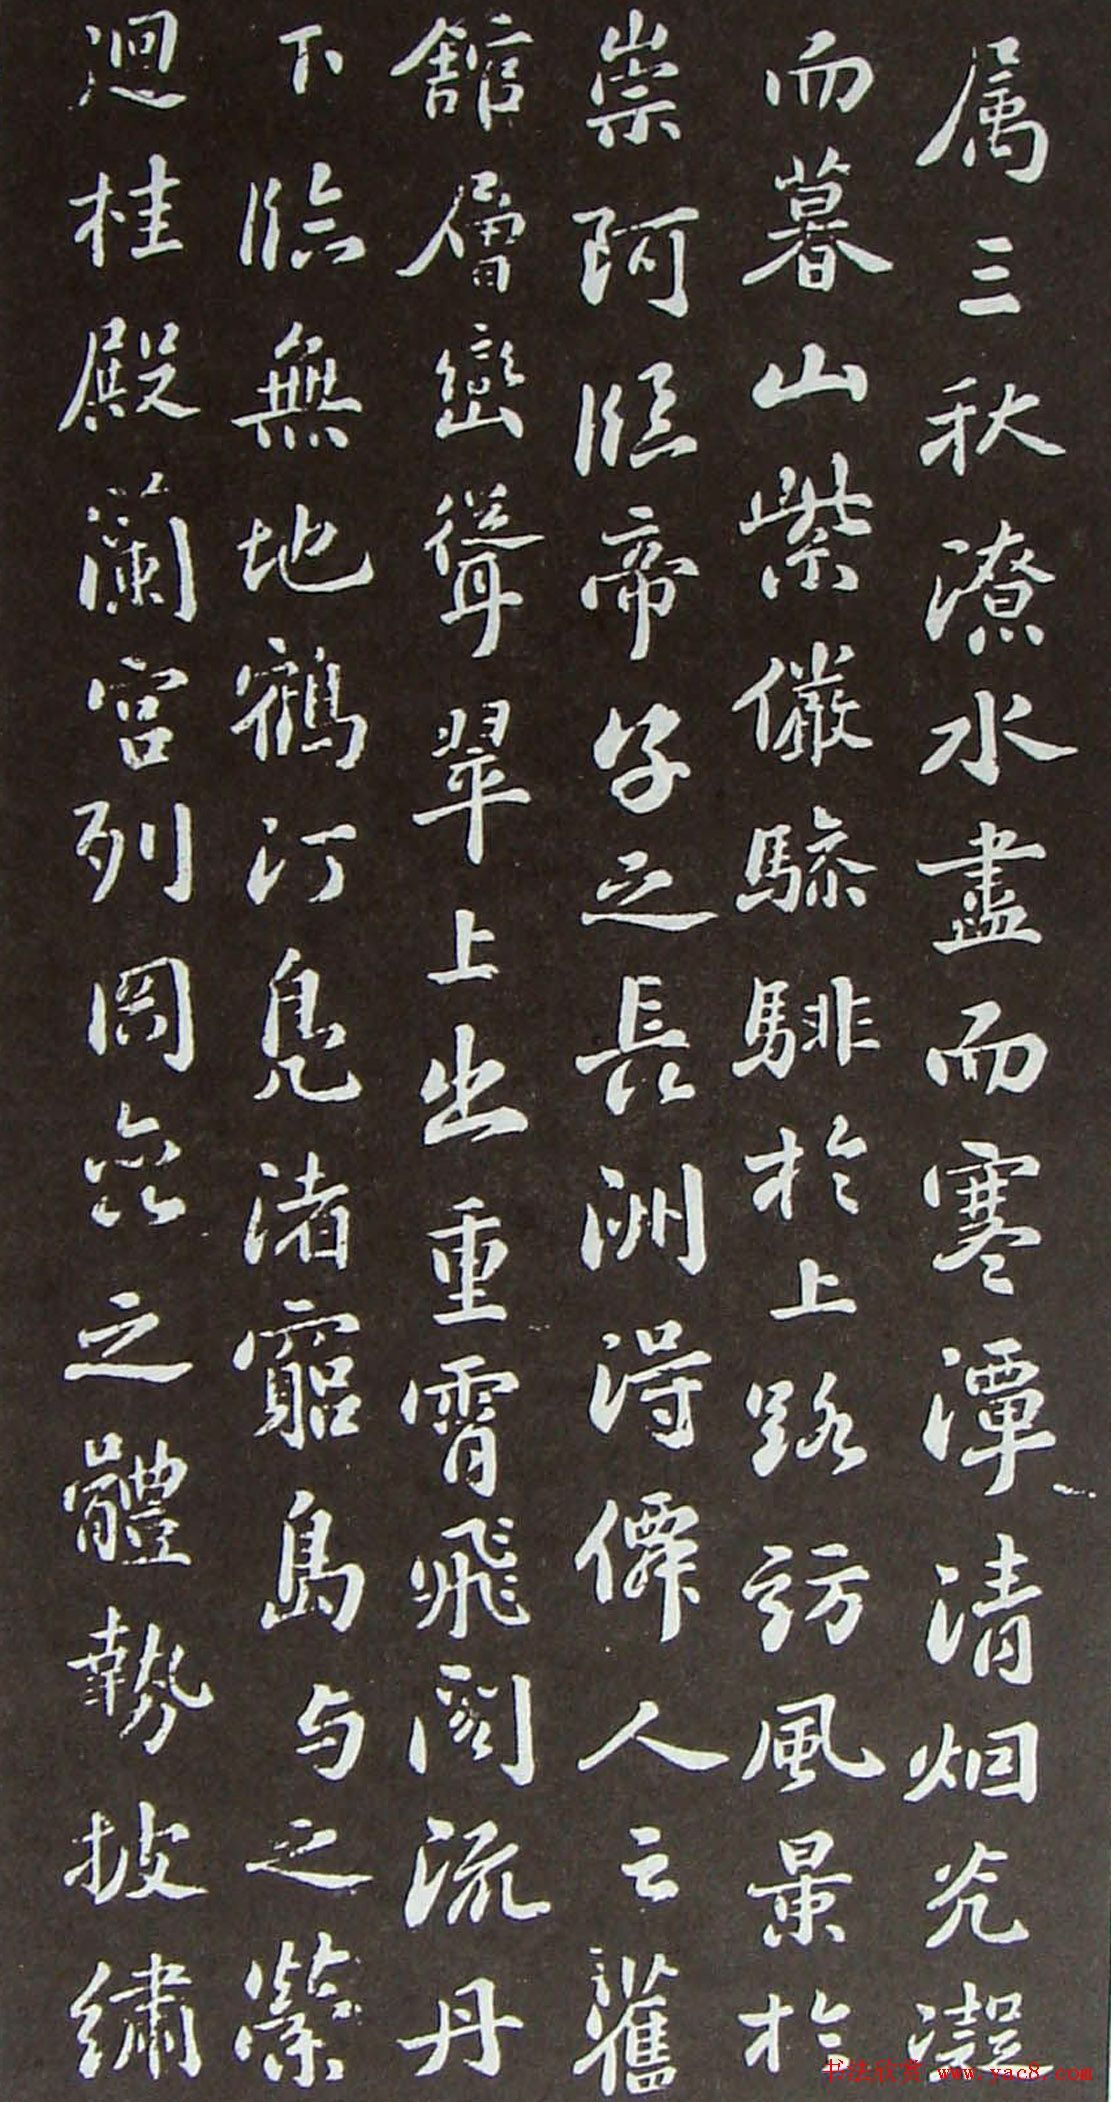 属三秋潦水盡而寒潭清烟光凝
而暮山紫儼驂騑於上路訪風景於
崇阿臨帝子之長洲得僊人之舊
舘層巒聳翠上出重霄飛閣流丹
下臨無地鶴汀鳧渚窮島与之縈
迴桂殿蘭宮列岡巒之體勢披繡
书法欣赏 www.yac8.com